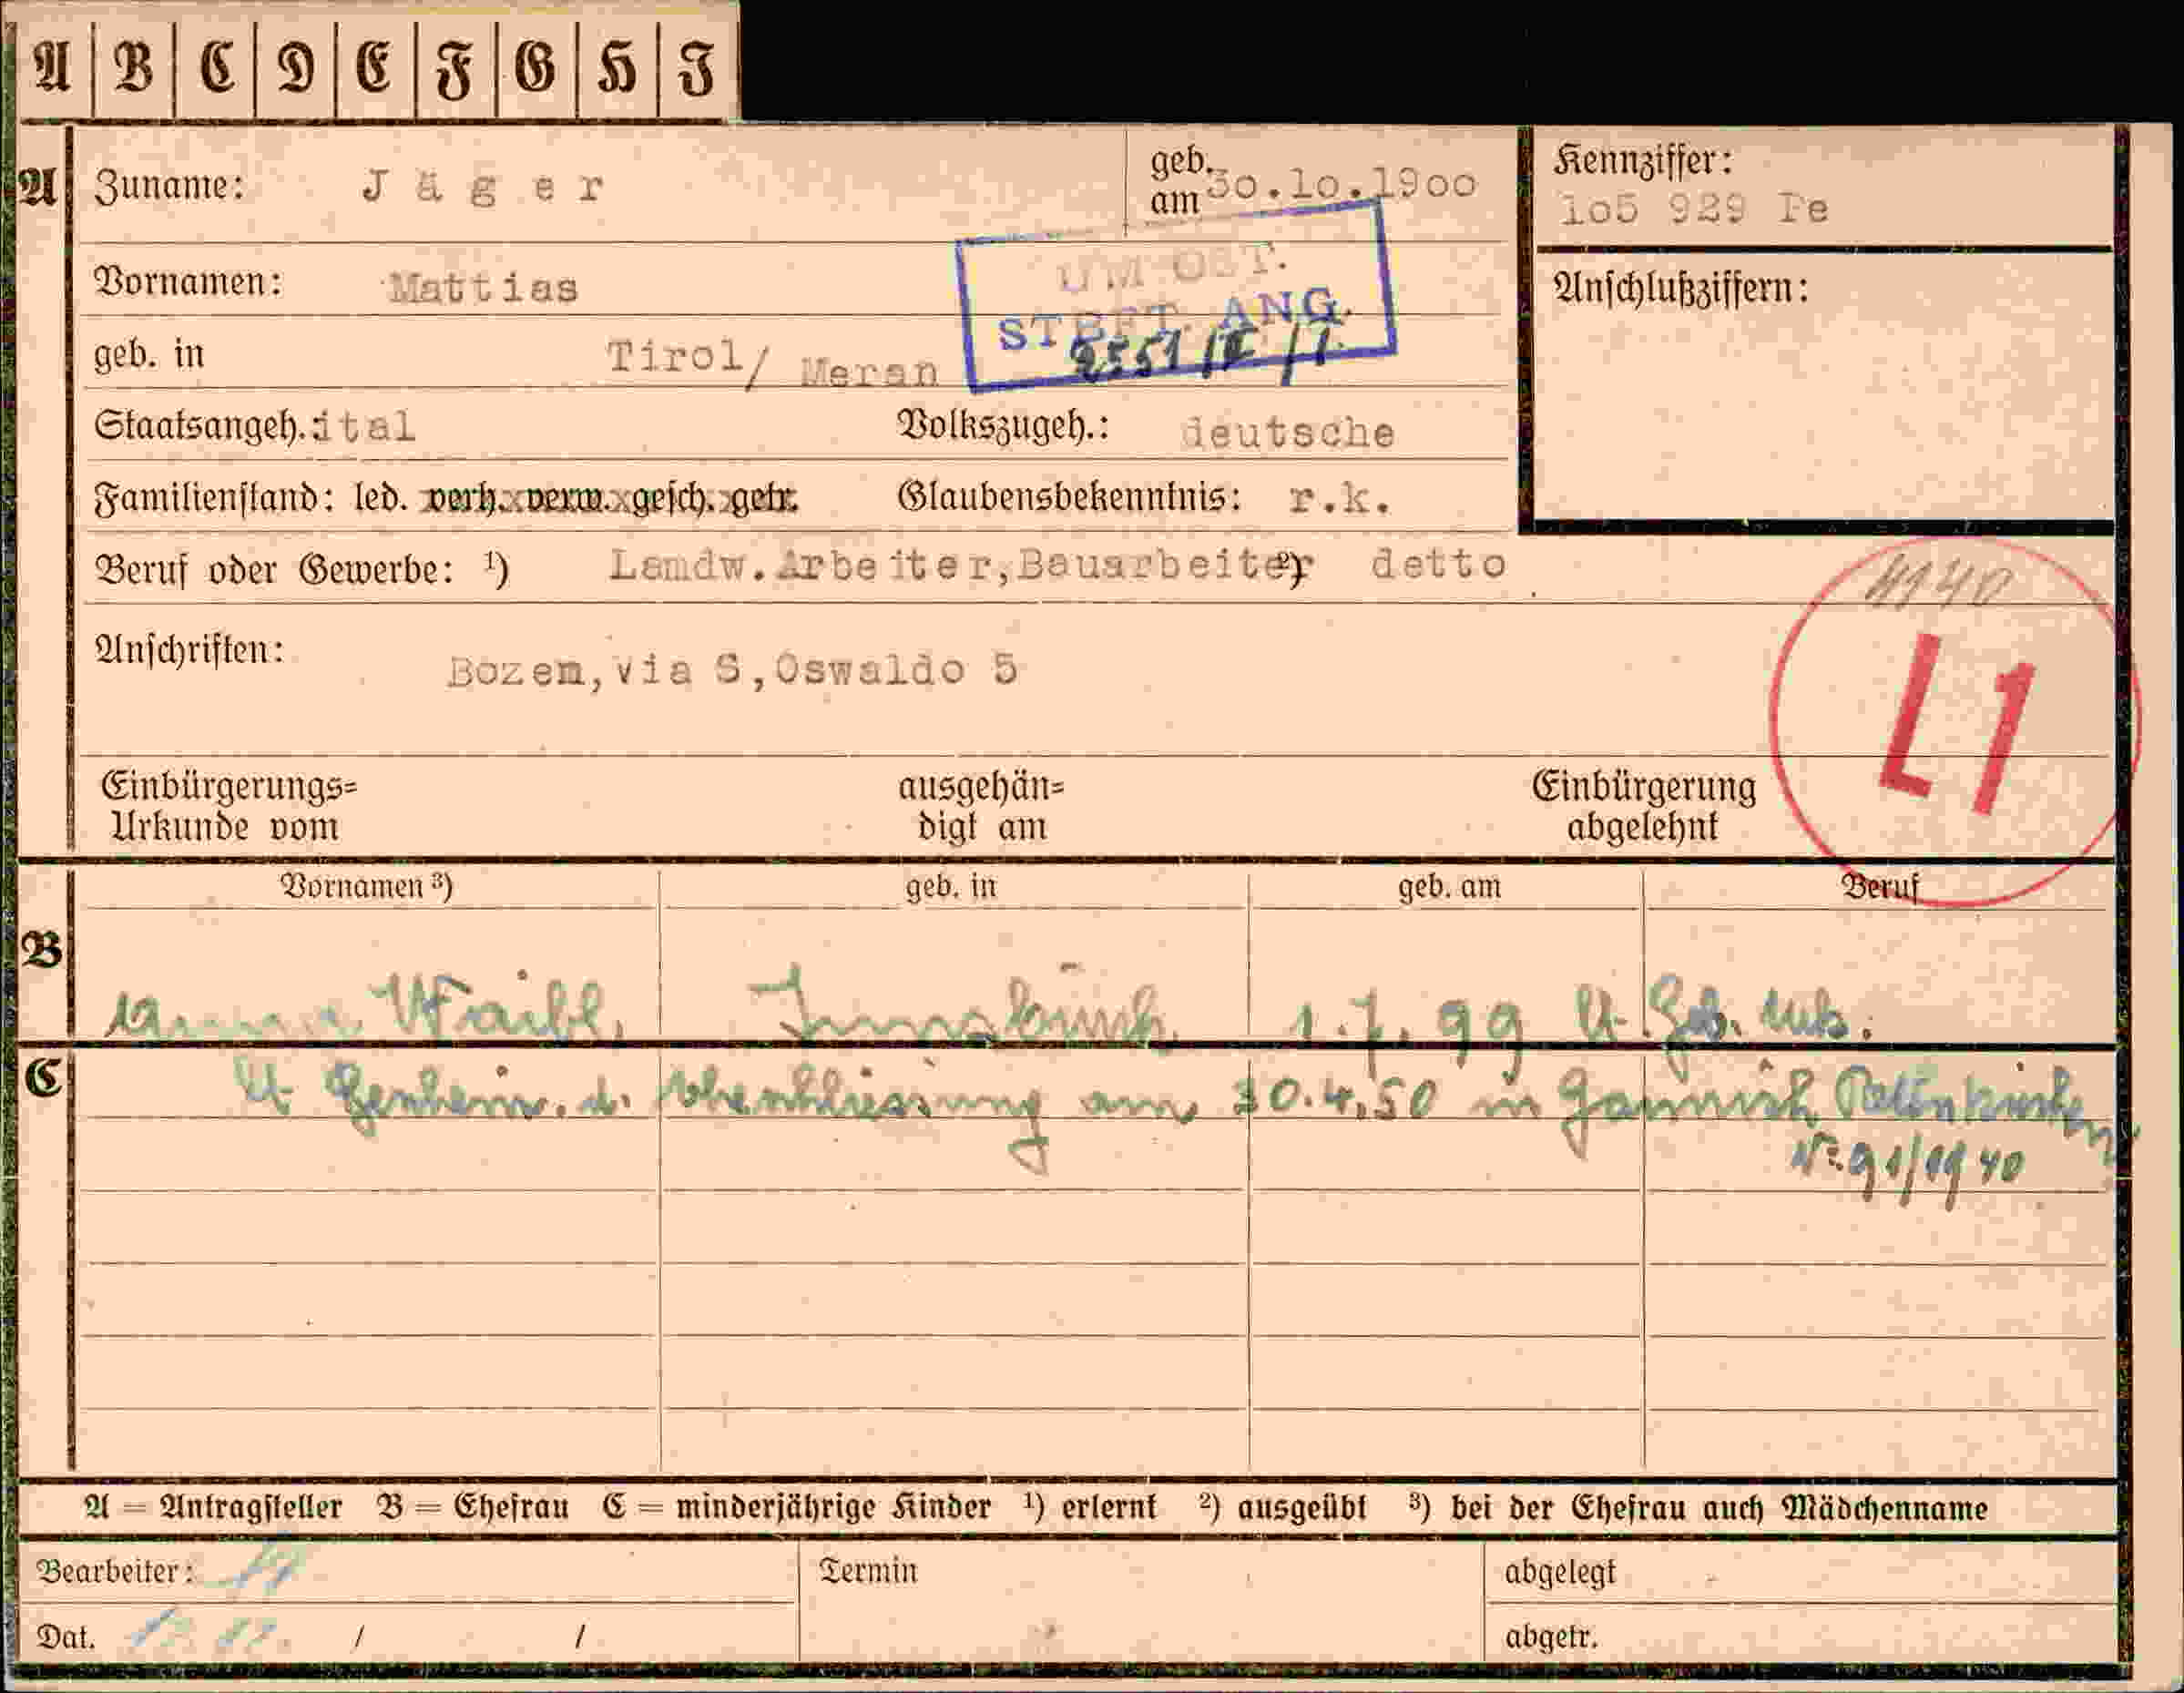 A B C D E F G H I
A Zuname: Jäger geb. am 30.10.1900 Kennziffer:
105 929 Pe
Vornamen: Mattias UM OST. Anschlußziffern:
STBFT. ANG.
geb. in Tirol/ Meran
Staatsangeh.: ital Volkszugeh.: deutsche
Familienstand: led. verh. verw. gesch. getr. Glaubensbekenntnis: r.k.
Beruf oder Gewerbe: ¹) Landw.Arbeiter,Bauarbeiter ²) detto
4140
L1
Anschriften: Bozen,via S,Oswaldo 5
Einbürgerungs= ausgehän= Einbürgerung
Urkunde vom digt am abgelehnt
Vornamen ³) geb. in geb. am Beruf
B Anna Waibl, Innsbruck 1.7.99 lt. Geb. Urk.
C lt. am 30.4.50 in Garmisch Partenkirchen
Nr. 91/1940
A = Antragsteller B = Ehefrau C = minderjährige Kinder ¹) erlernt ²) ausgeübt ³) bei der Ehefrau auch Mädchenname
Bearbeiter: Termin abgelegt
Dat. / / abgetr.